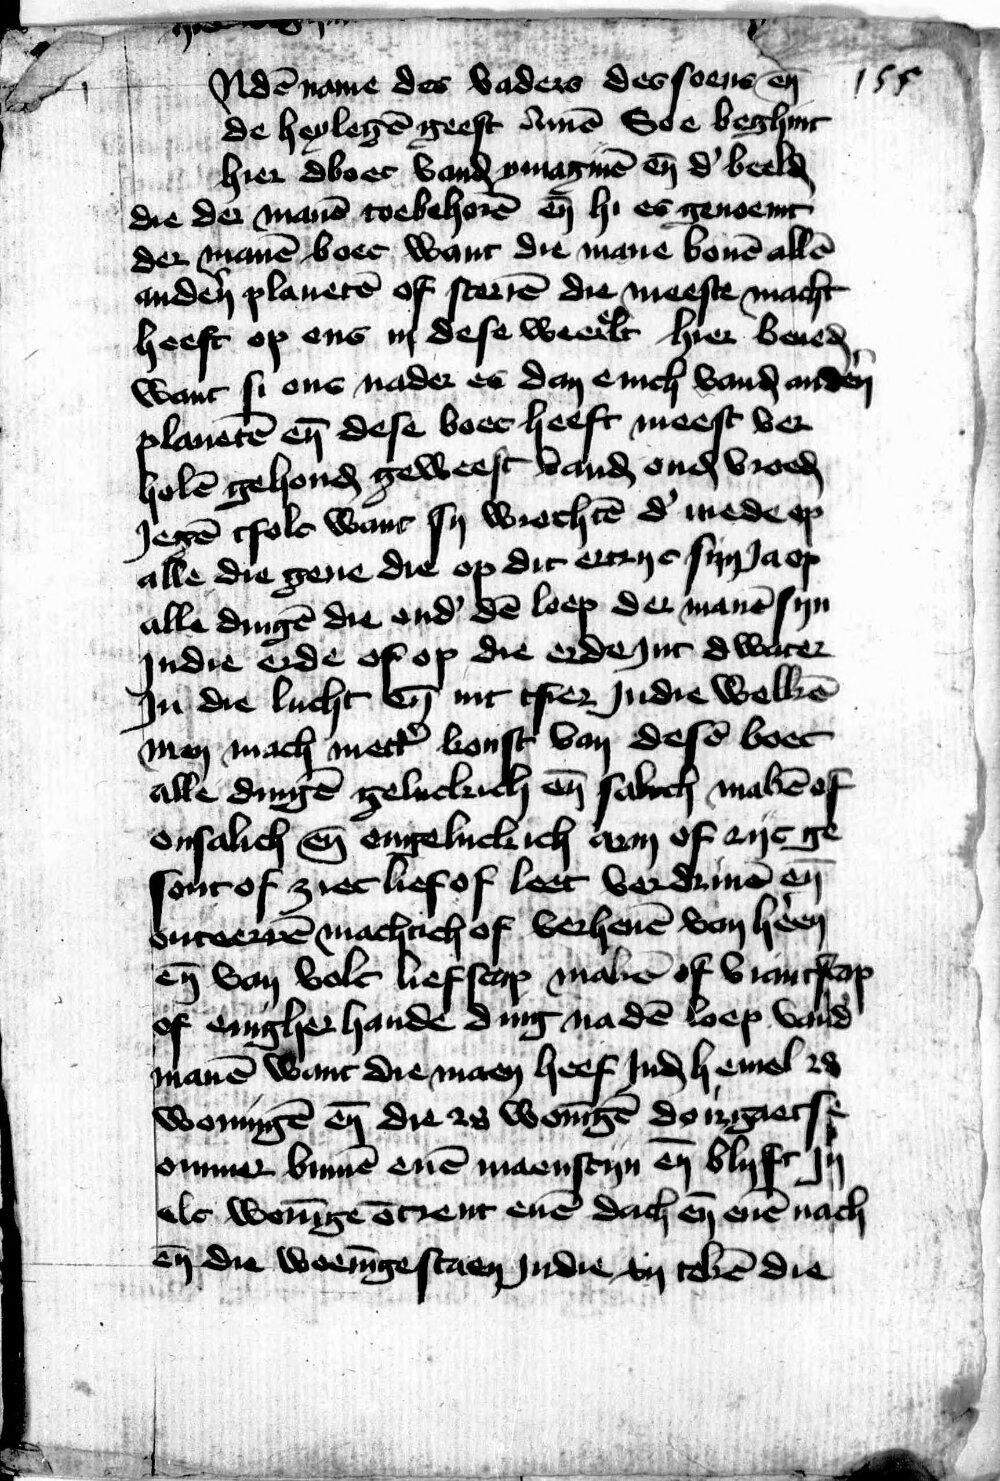 155
Ndē name des vaders des soens en̄
de heyleghē geest Amē Soe beghint
hier dboec vandē ymaginē en̄ d' beeldē
die der manē toebehorē en̄ hi es genoemt
der manē boec want die mane bouē allē
anderē planetē of sterrē die meeste macht
heeft op ons in dese weerelt hier benedē
want si ons nader es dan enich vandē anderē
planetē en̄ dese boec heeft meest ver
holē gehoudē geweest vandē oudē vroedē
Jegē tfolc want sy wrochtē d' mede op
alle die gene die op dit ertryc syn Ja op
alle dingē die ond' dē loep der manē syn
Jndie erde of op die erde Jnt dwater
Jn die lucht en̄ int tfier Jndie wolkē
men mach mett' konst van desē boec
alle dingē geluckich en̄ salich makē of
onsalich en̄ ongeluckich arm of ryc ge
sont of ziec lief of leet verdriuē en̄
onteerrē machtich of verheuē van heren
en̄ van volc liefscap makē of viantscap
of enigherhande ding na dē loep vand'
manē want die maen heef Jndē hemel 28
woningē en̄ die 28 woni̅gē doirgaet se
ommer binnē enē maenscyn en̄ blyft Jn
elc woni̅ge ōtrent enē dach en̄ enē nach
en̄ die woeni̅ge staen Jndie xij tekē die